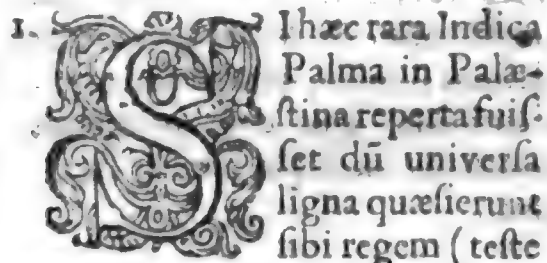 1. SI hæc rara Indica
Palma in Palæ-
ſtina reperta fuiſ-
ſet dū univerſa
ligna quæſierunt
ſibi regem (teſte